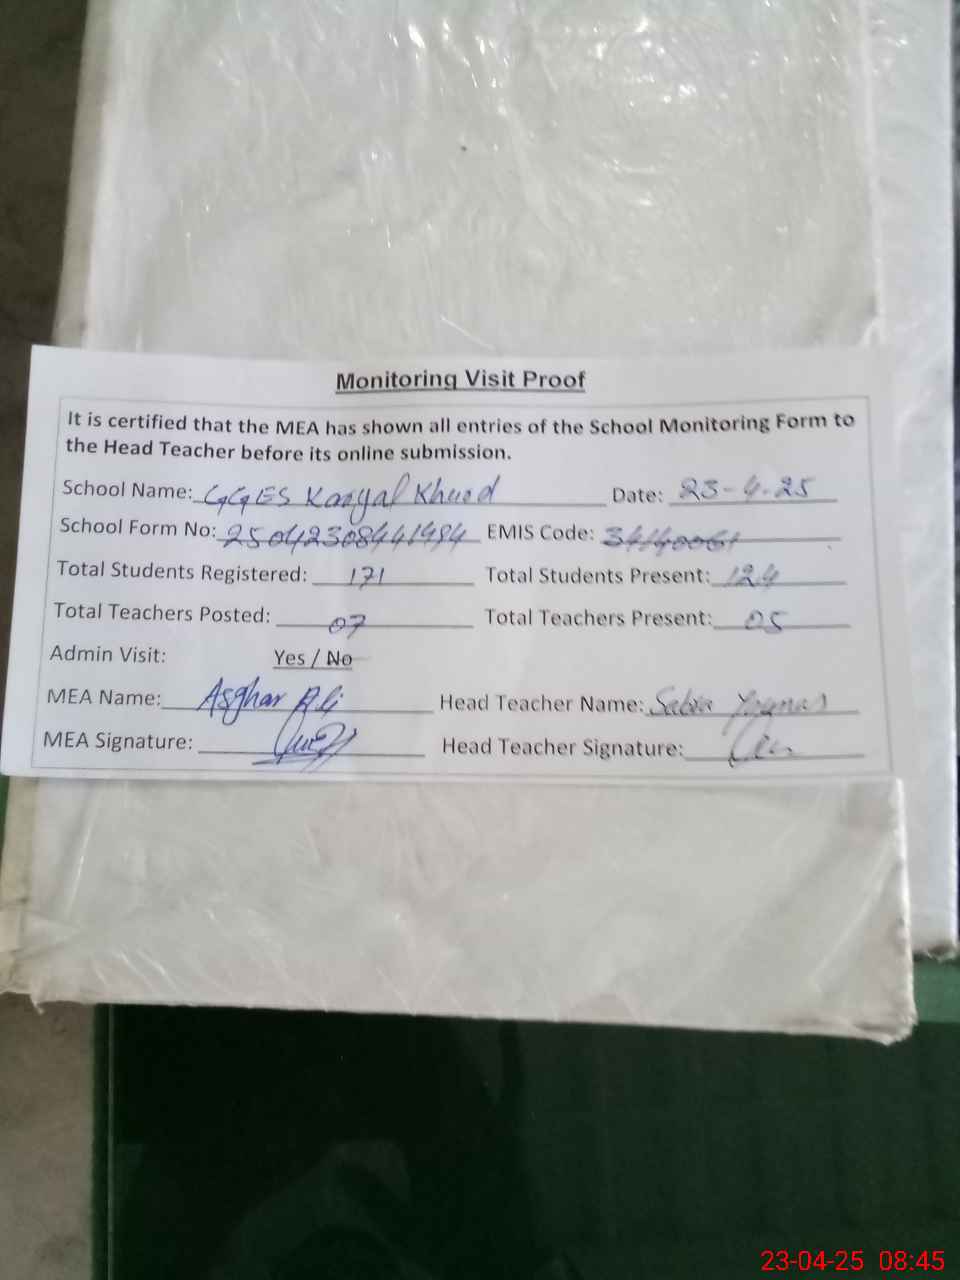 Monitoring Visit Proof
It is certified that the MEA has shown all entries of the School Monitoring Form to
the Head Teacher before its online submission.
School Name: GGES Kanyal Khurd Date: 23-4-25
School Form No: 25042308441484 EMIS Code: 34140061
Total Students Registered: 171 Total Students Present: 124
Total Teachers Posted: 07 Total Teachers Present: 05
Admin Visit: Yes / No
MEA Name: Asghar Ali Head Teacher Name: Sabia
MEA Signature: Head Teacher Signature:
23-04-25 08:45